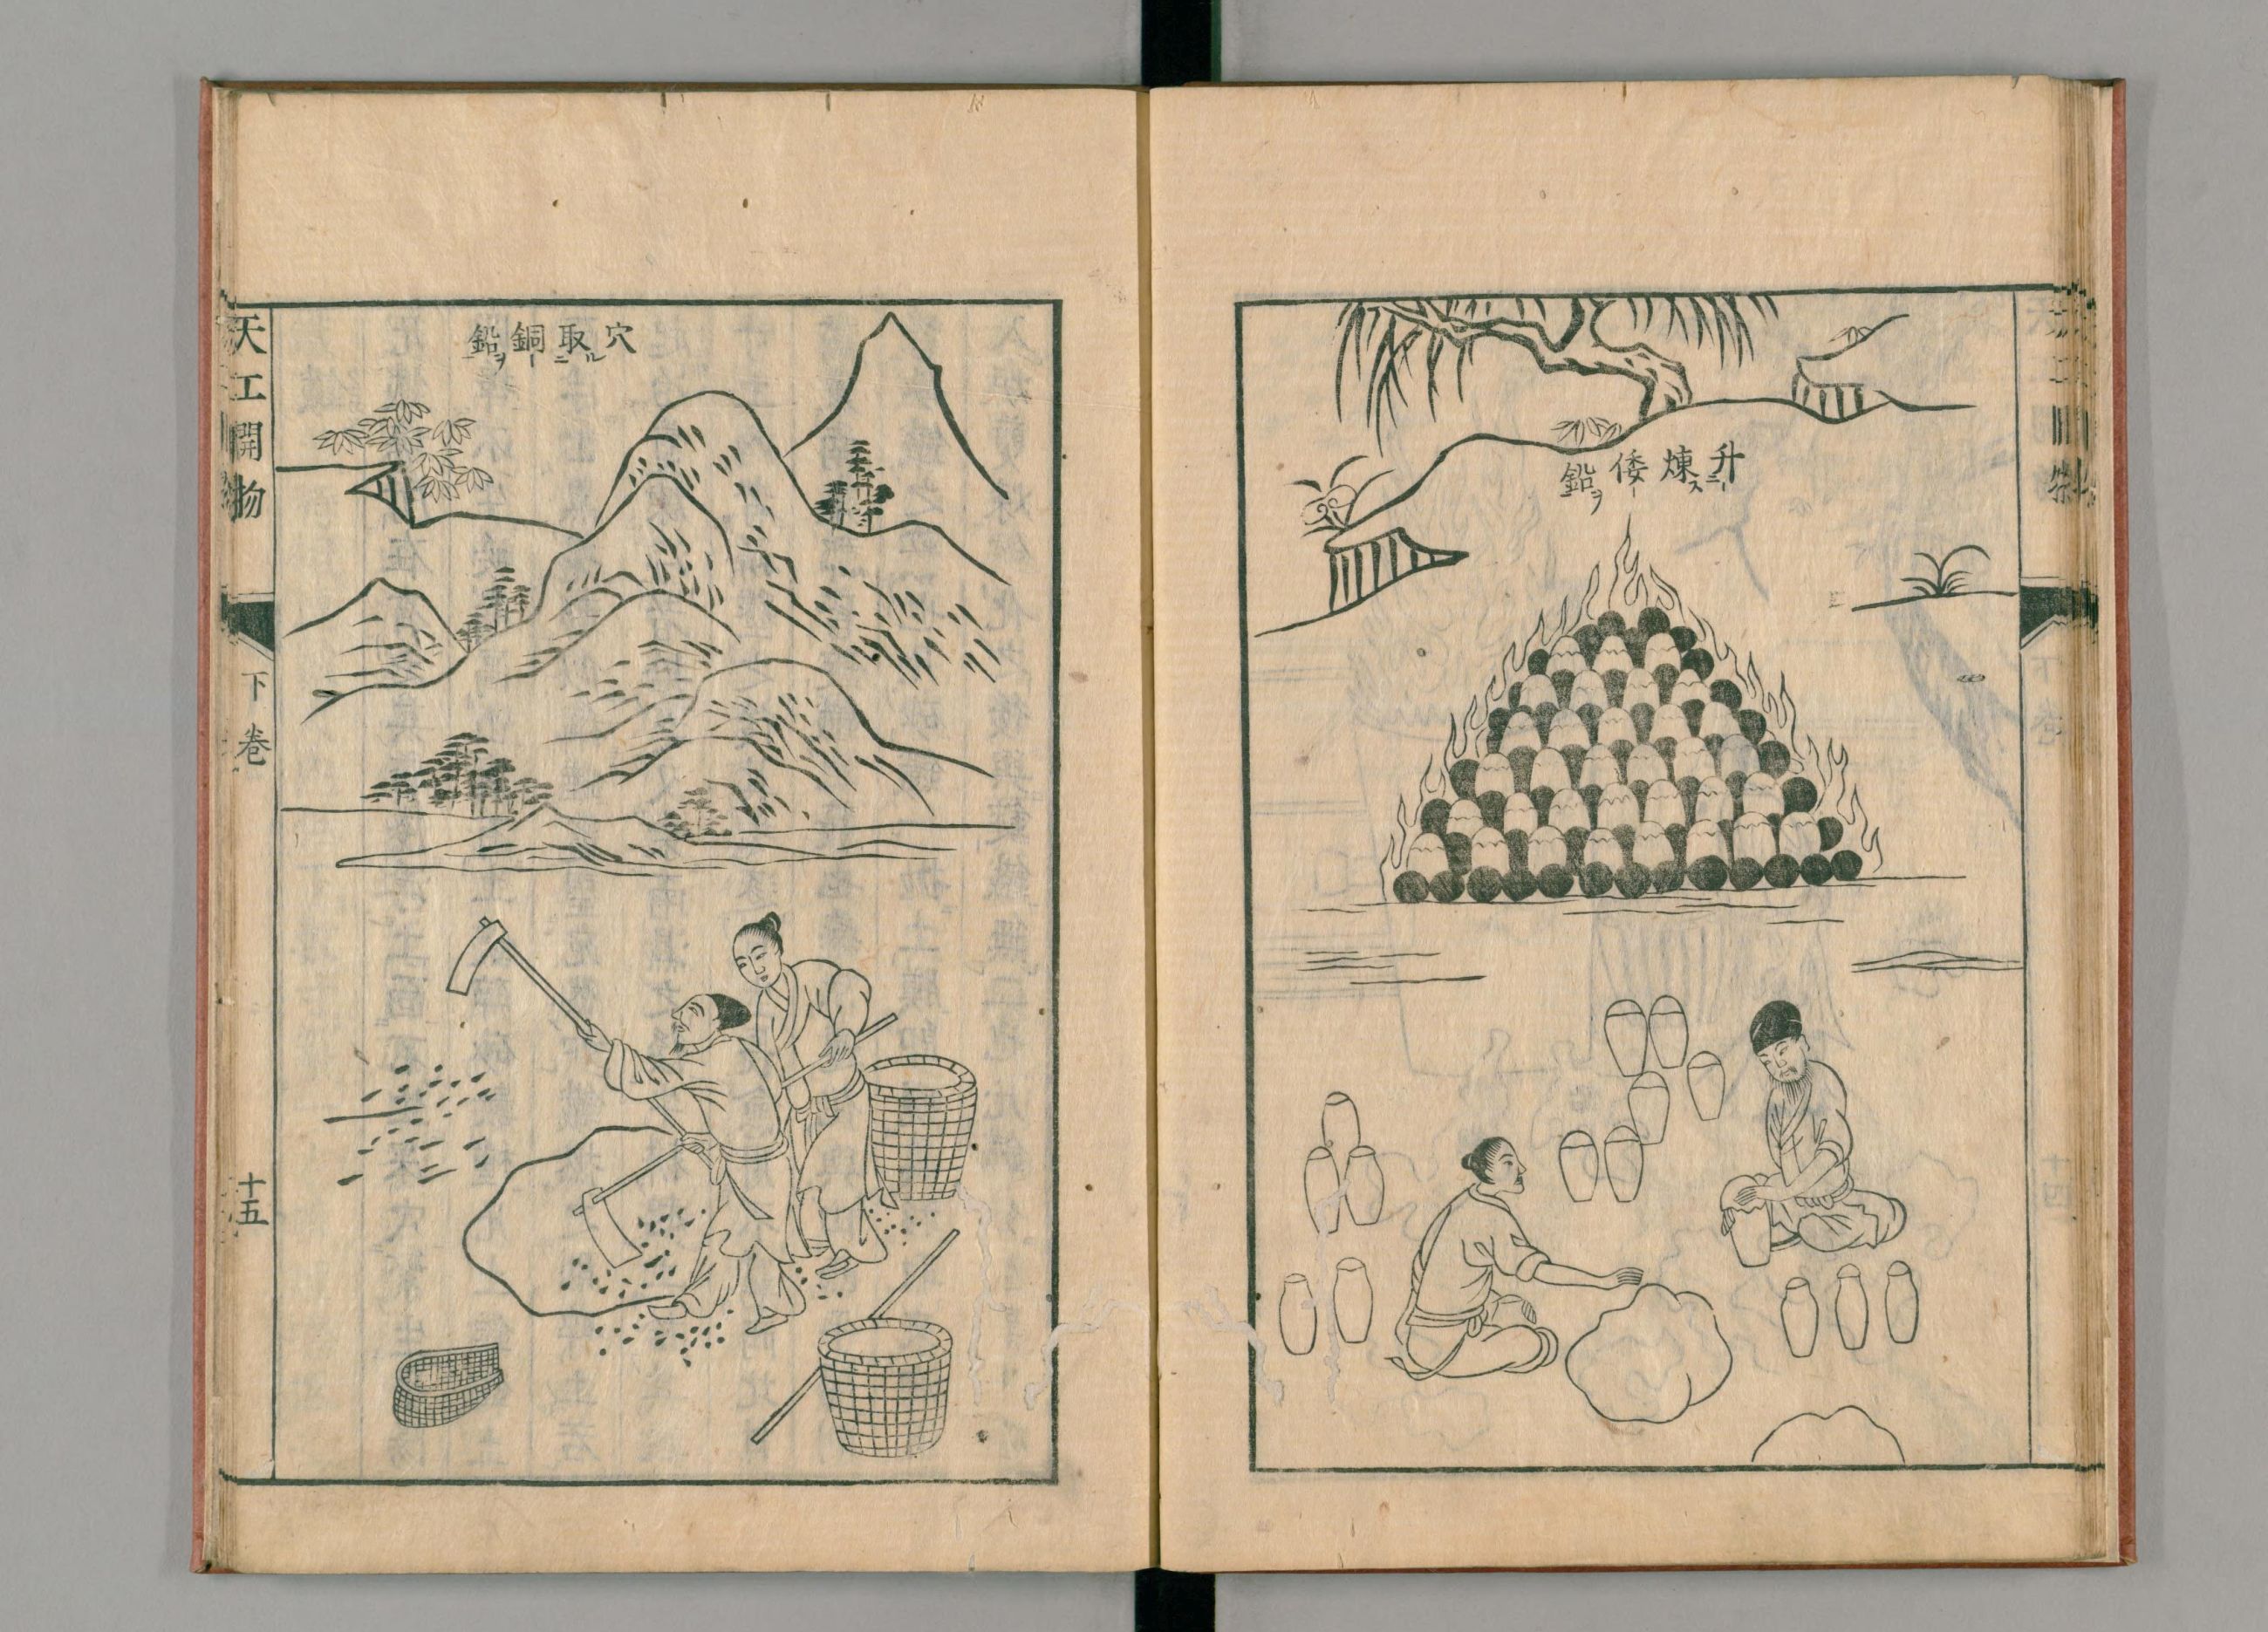 升煉倭鉛
穴取銅鉛
天工開物
下巻
十五